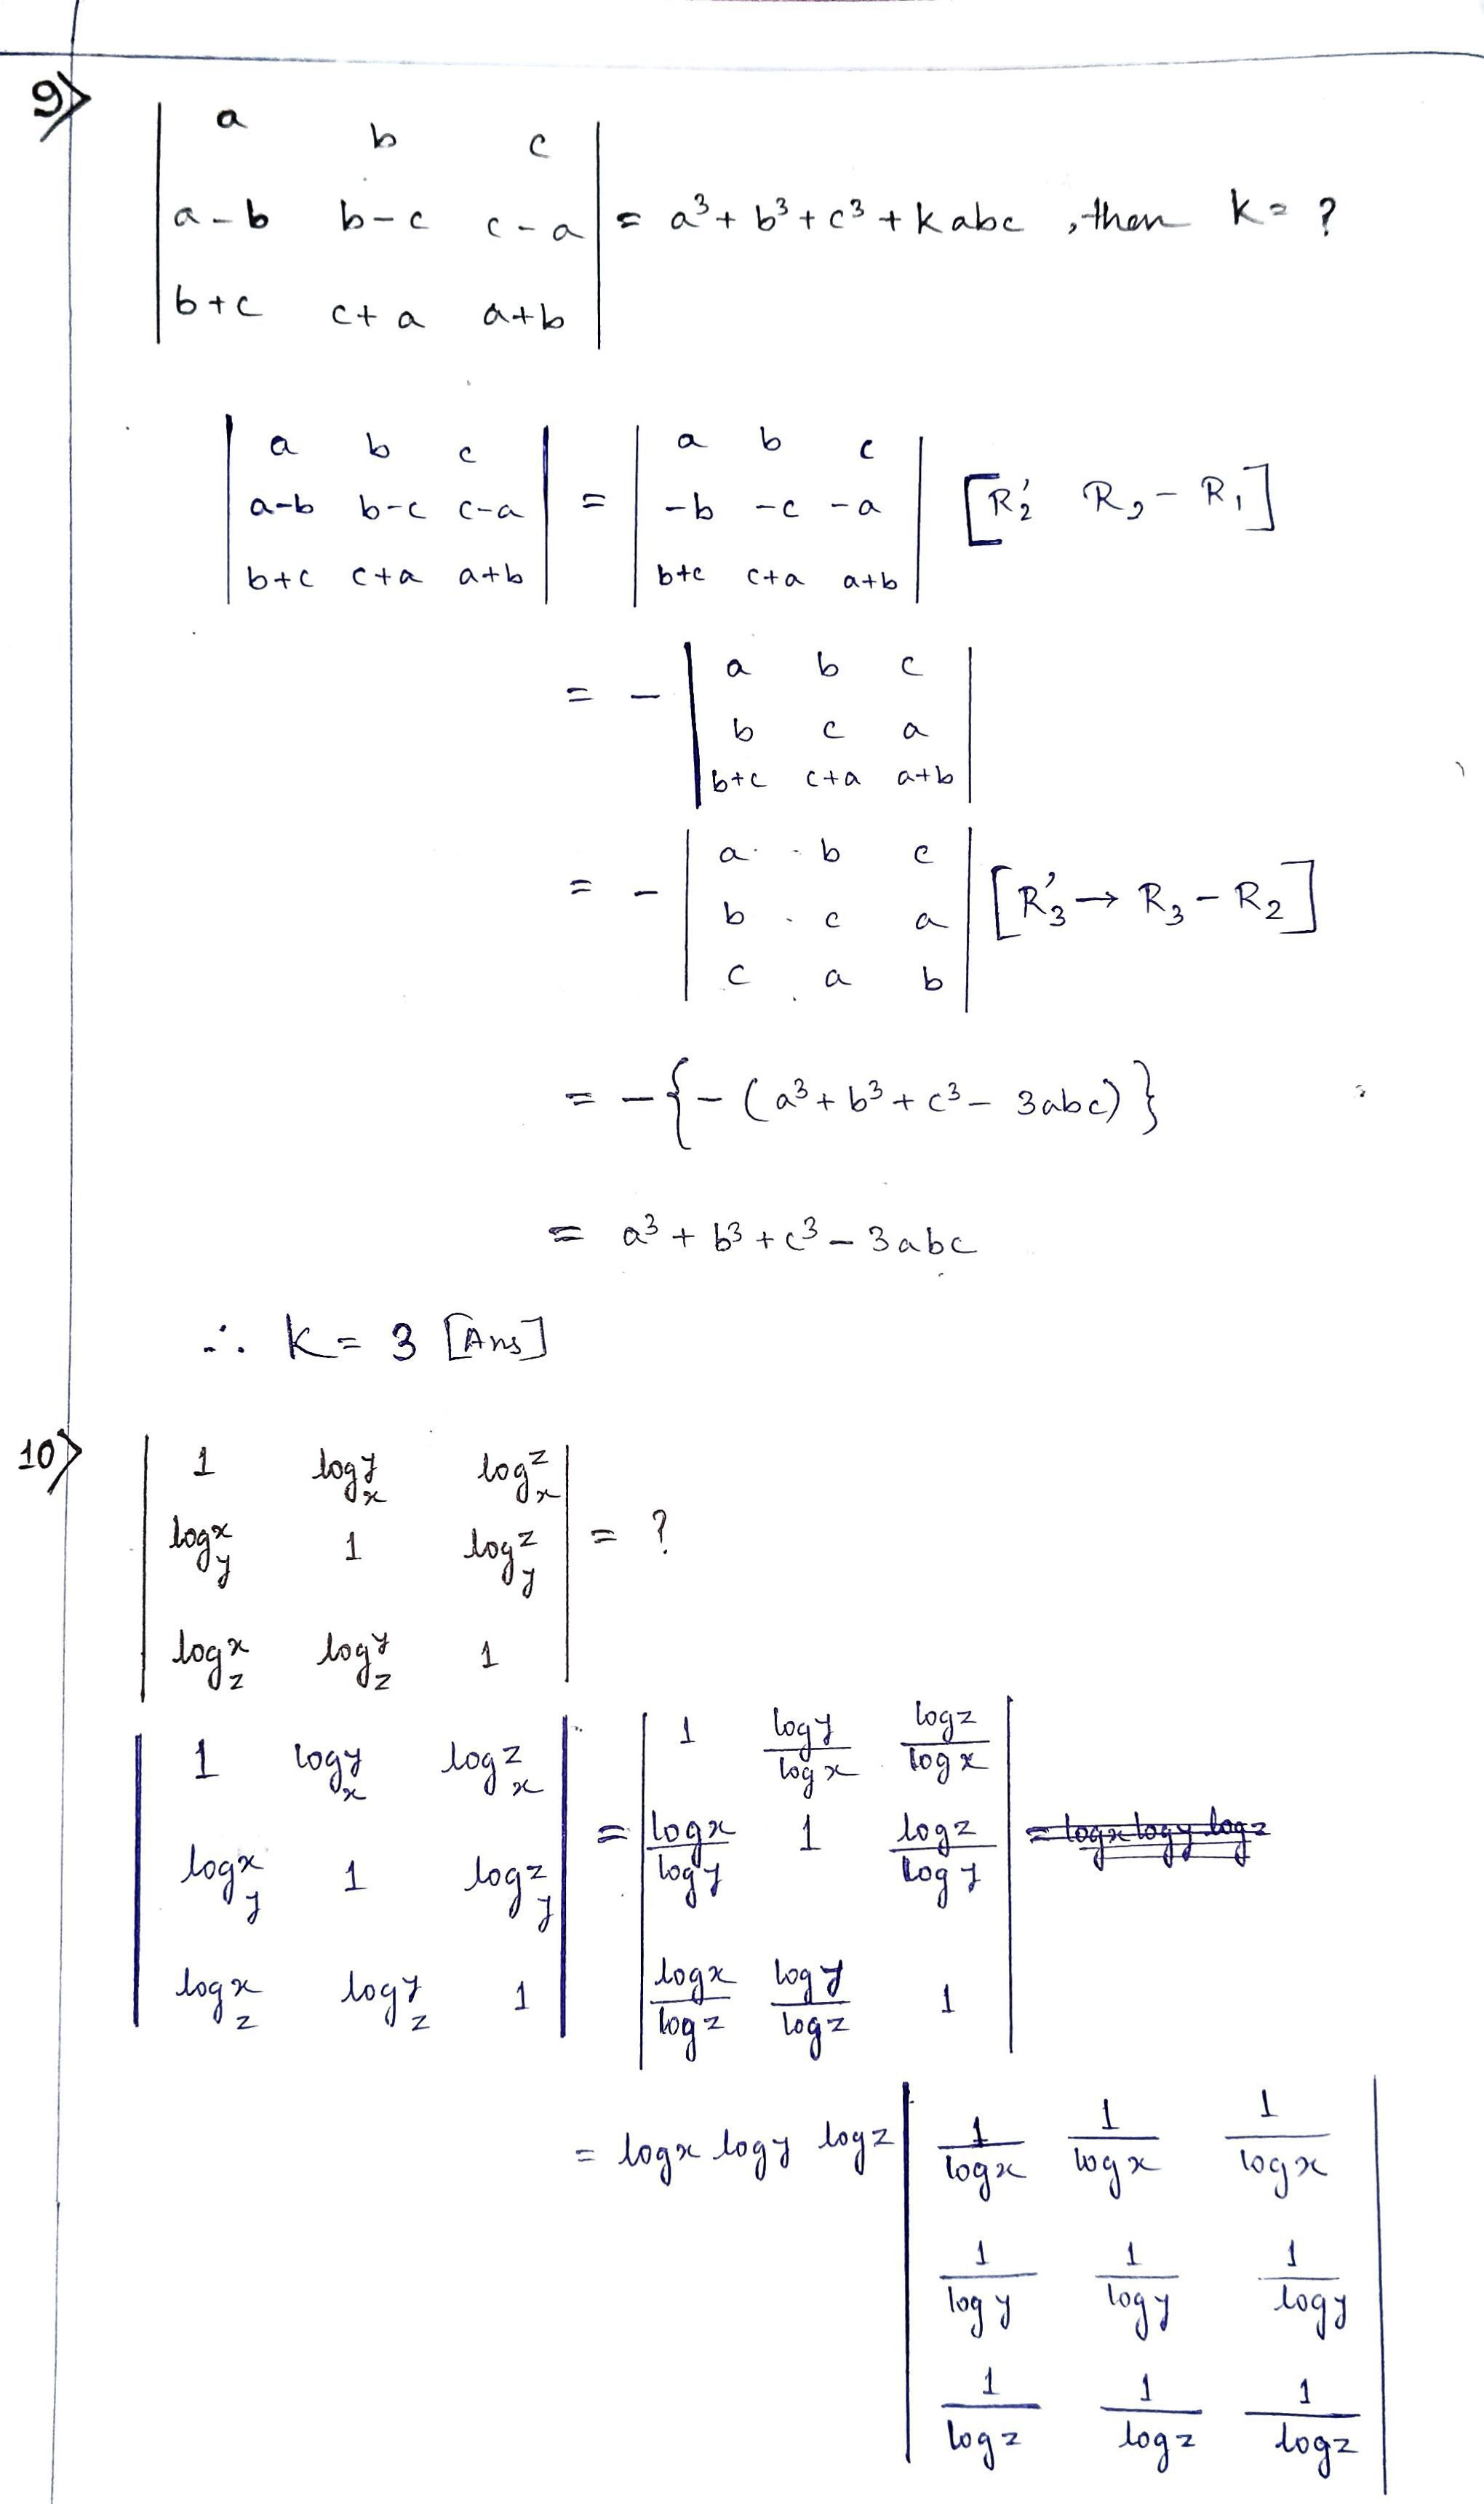 9>
| a b c |
| a-b b-c c-a | = a³+b³+c³+kabc, then k=?
| b+c c+a a+b |
| a b c | = | a b c |
| a-b b-c c-a | = | -b -c -a | [R₂′ R₂-R₁]
| b+c c+a a+b | | b+c c+a a+b |
= - | a b c |
| b c a |
| b+c c+a a+b |
= - | a b c |
| b c a | [R₃′→ R₃-R₂]
| c a b |
= -{-(a³+b³+c³-3abc)}
= a³+b³+c³-3abc
∴ K=3 [Ans]
10>
| 1 log_x y log_x z |
| log_y x 1 log_y z | = ?
| log_z x log_z y 1 |
| 1 log_x y log_x z | = | 1 logy/logx logz/logx |
| log_y x 1 log_y z | = | logx/logy 1 logz/logy | = logx logy logz
| log_z x log_z y 1 | | logx/logz logy/logz 1 |
= logx logy logz | 1/logx 1/logx 1/logx |
| 1/logy 1/logy 1/logy |
| 1/logz 1/logz 1/logz |